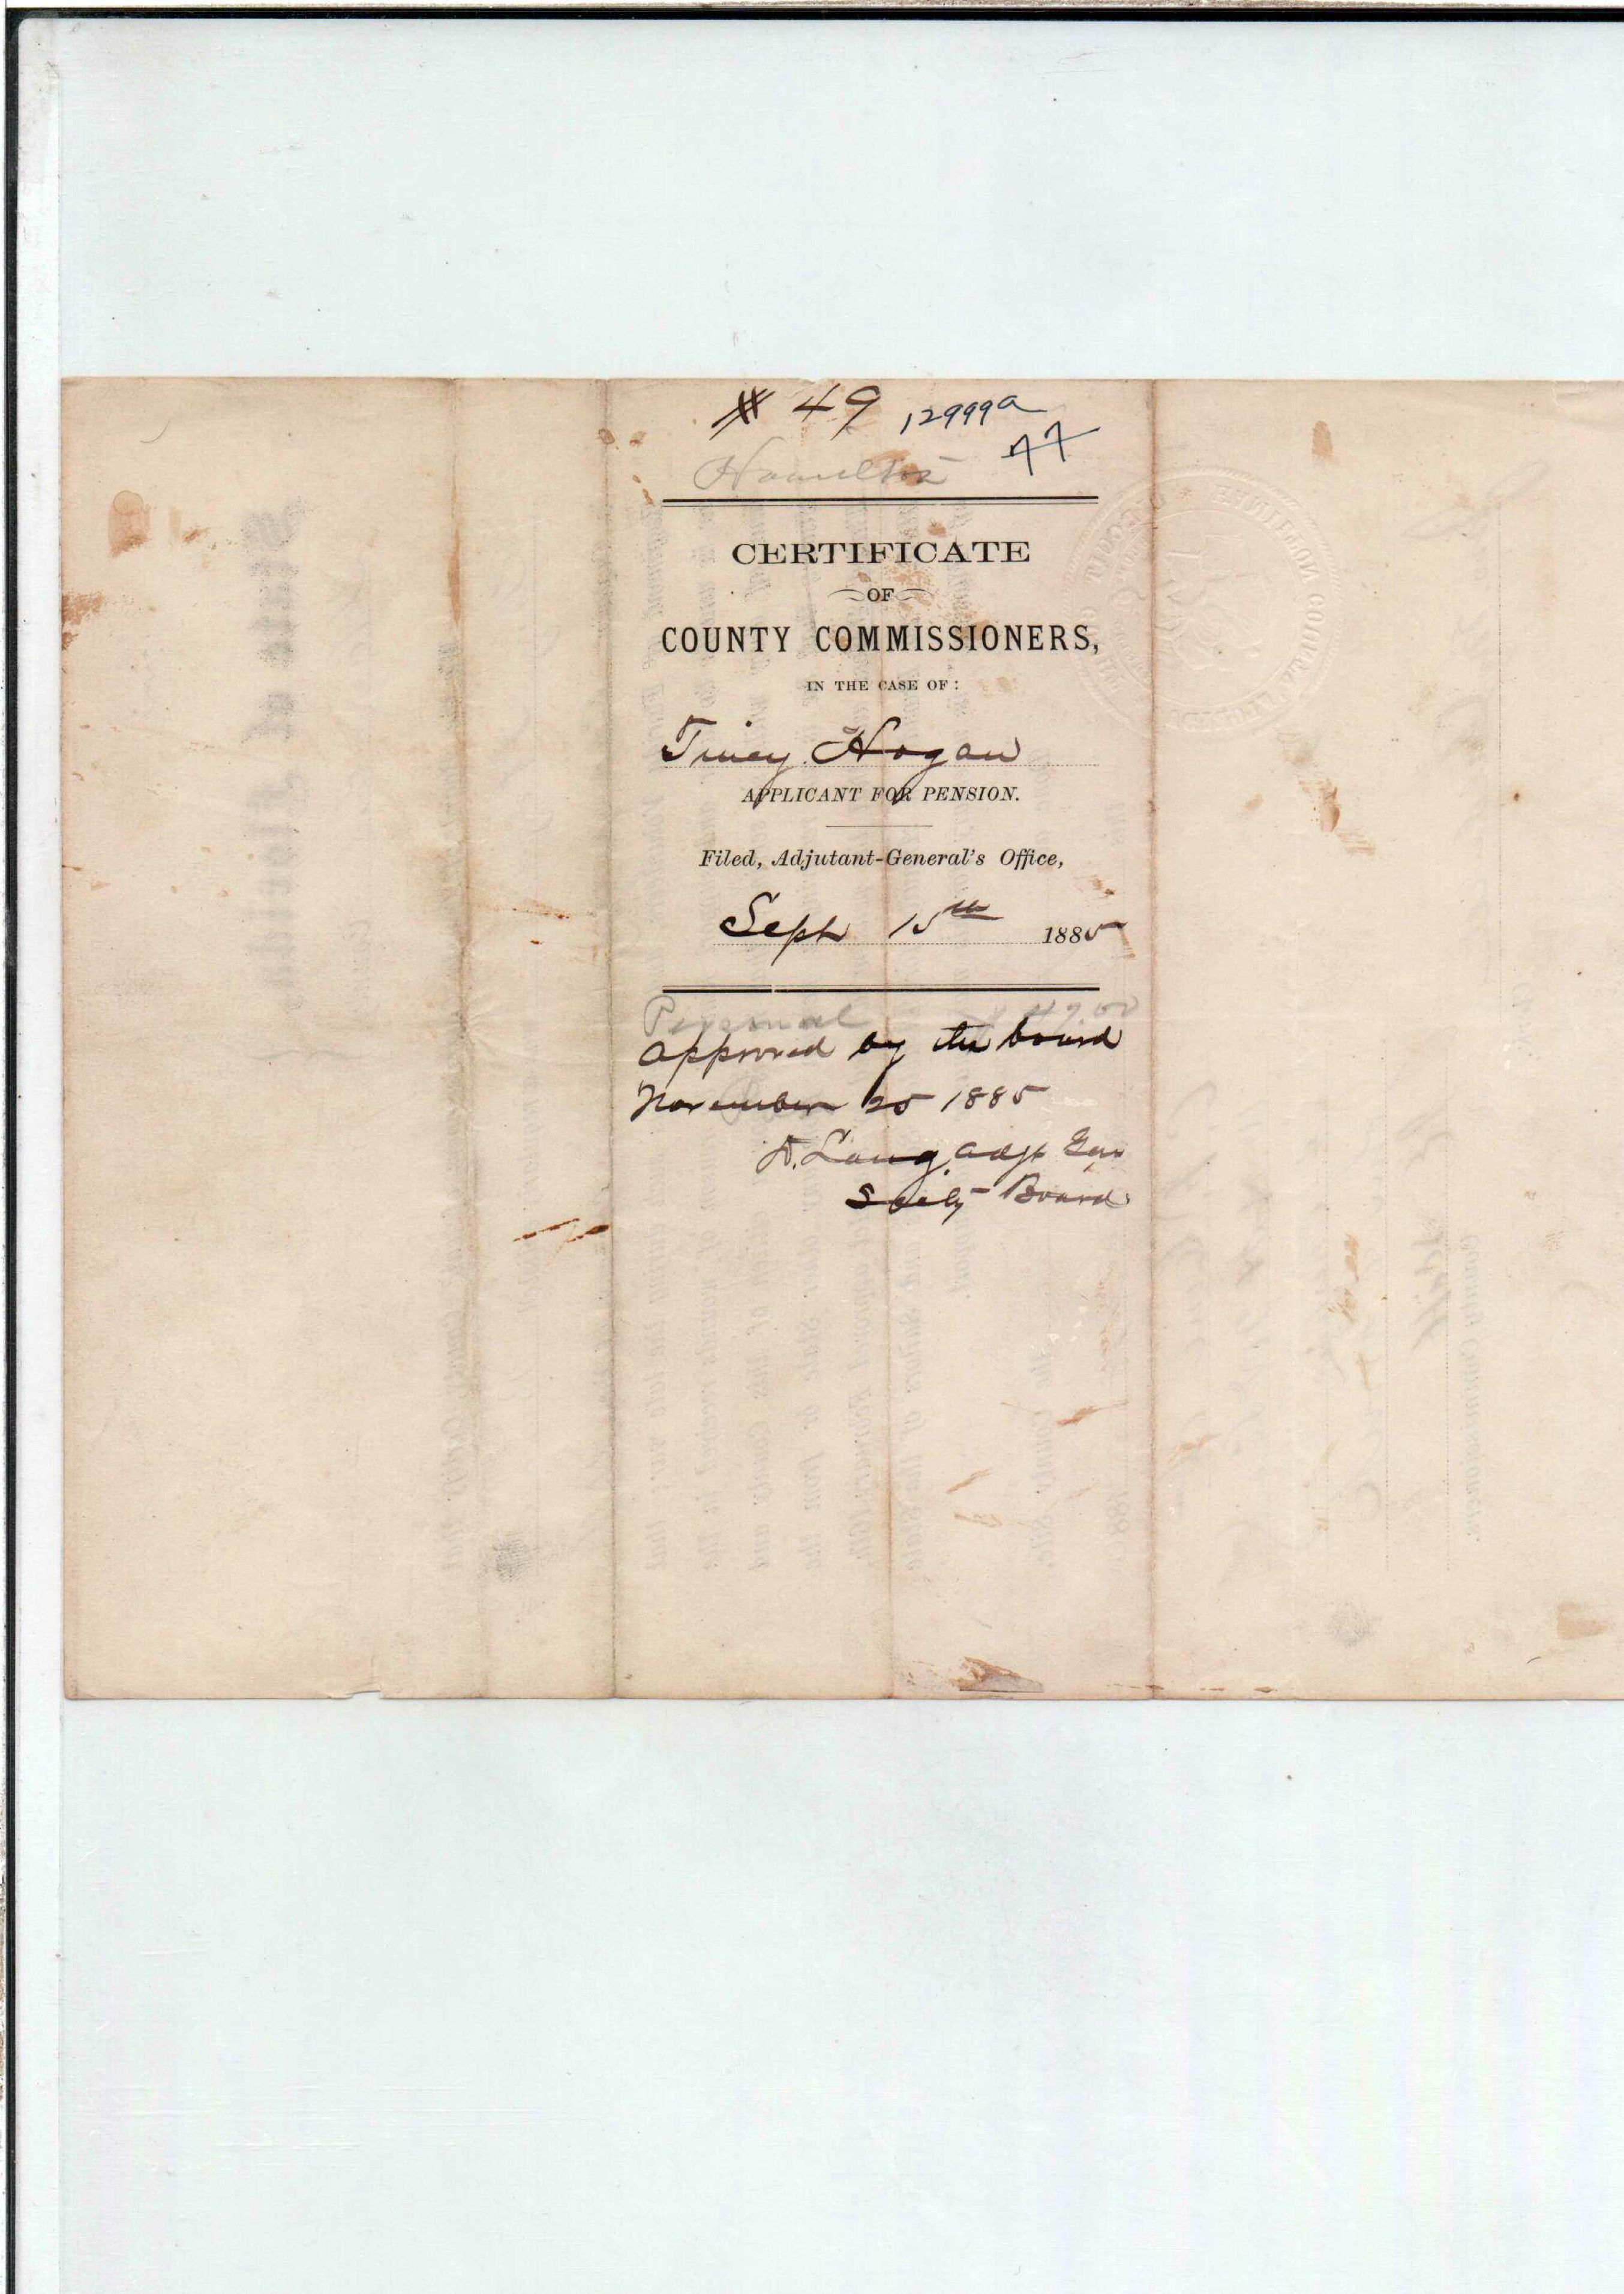 # 49 12999a
Hamilton
CERTIFICATE
OF
COUNTY COMMISSIONERS,
IN THE CASE OF:
Hogan
APPLICANT FOR PENSION.
Filed, Adjutant-General's Office,
Sept 15th 1885
Personal
approved by the board
November 25 1885
D. Lang, Adjt Gen
Secty Board